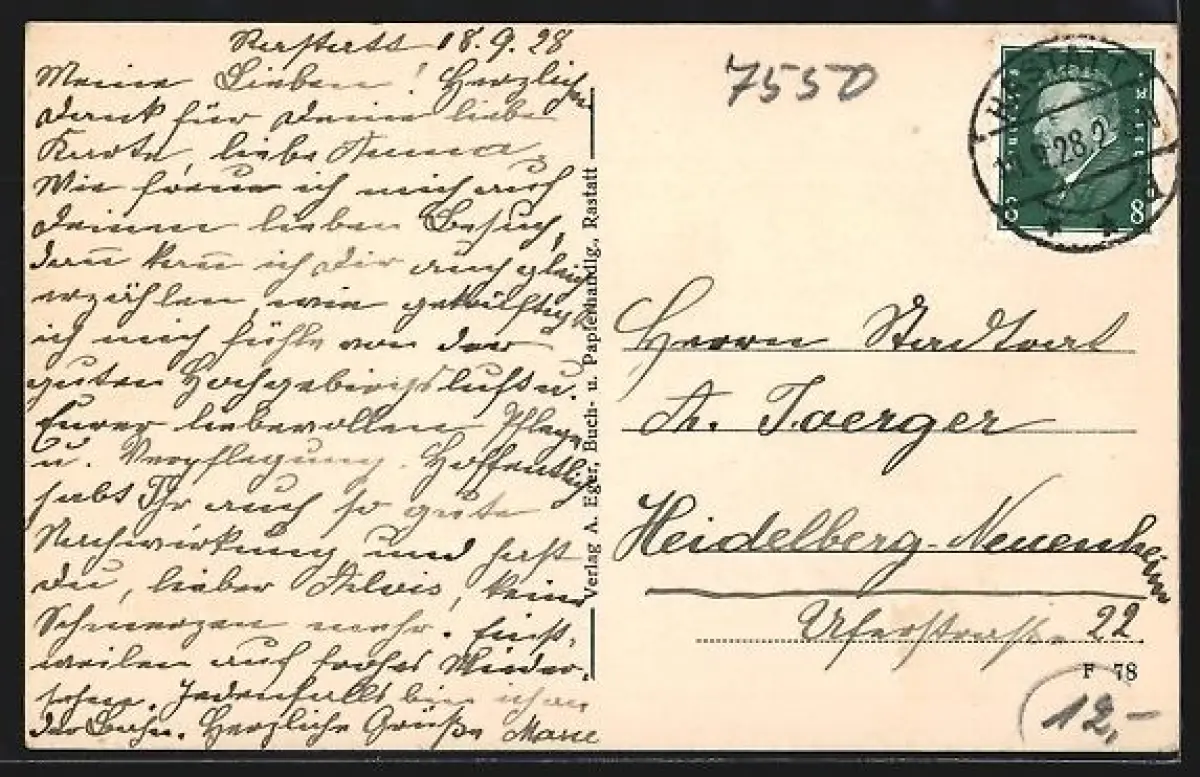 Rastatt 18.9.28
Meine Lieben! Herzlichen
Dank für Deine liebe
Karte, liebe Anna.
Wie freue ich mich auf
Deinen lieben Besuch,
dann kann ich Dir auch gleich
erzählen, wie gekräftigt
ich mich fühle von der
guten Hochgebirgsluft u.
Eurer liebevollen Pflege
u. Verpflegung. Hoffentlich
habt Ihr auch so gute
Nachwirkung und hast
Du, lieber Alois, keine
Schmerzen mehr. Einst-
weilen auf frohes Wieder-
sehen. Jedenfalls bin ich an
der Bahn. Herzliche Grüße Marie
Verlag A. Eger, Buch- u. Papierhandlg., Rastatt
7550
RASTATT
28.2
8
Herrn Stadtrat
A. Joerger
Heidelberg-Neuenheim
Uferstraße 22.
F 78
12,-